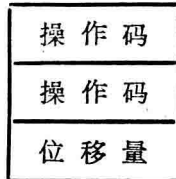 操作码
操作码
位移量